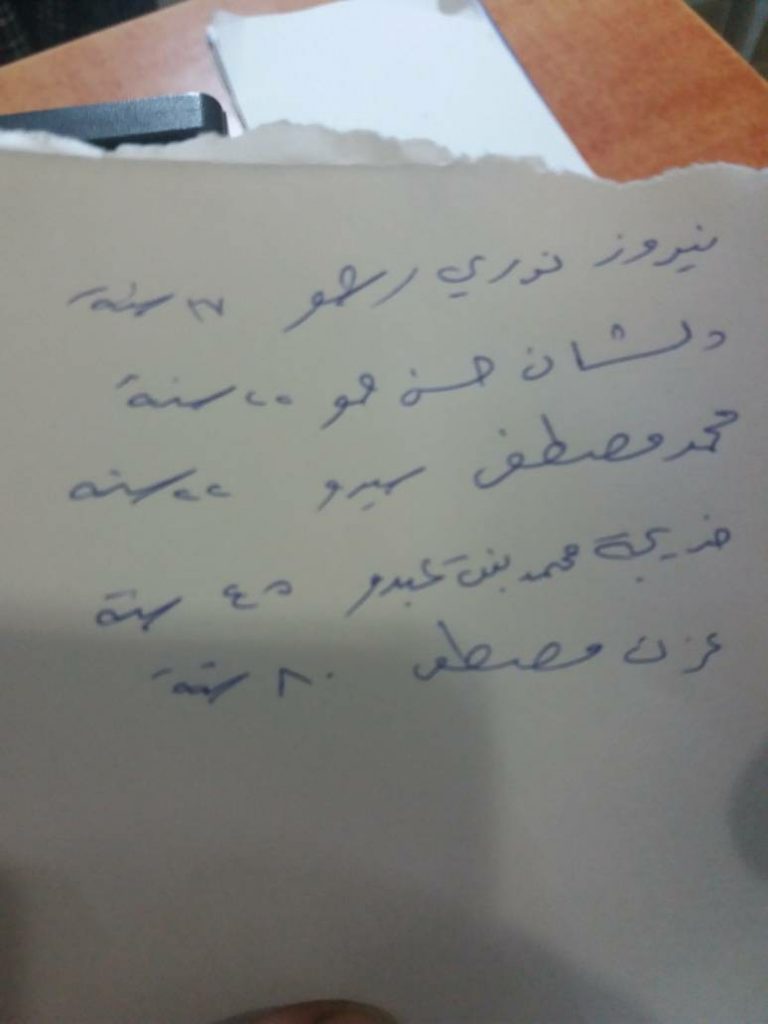 نيروز نوري رشو سنة
دلشان حسن حمو ٢٠ سنة
محمد مصطفى سيدو ٢٢ سنة
خديجة محمد بنت عبدو ٤٥ سنة
عزت مصطفى ٨٠ سنة